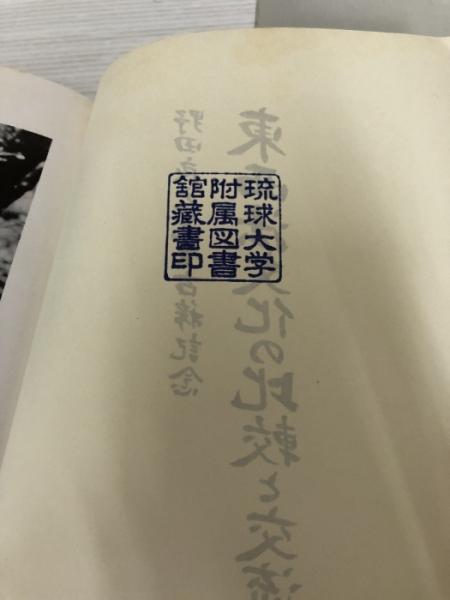 東西文化の比較と交流
野田古稀記念
琉球大学
附属図書
館藏書印